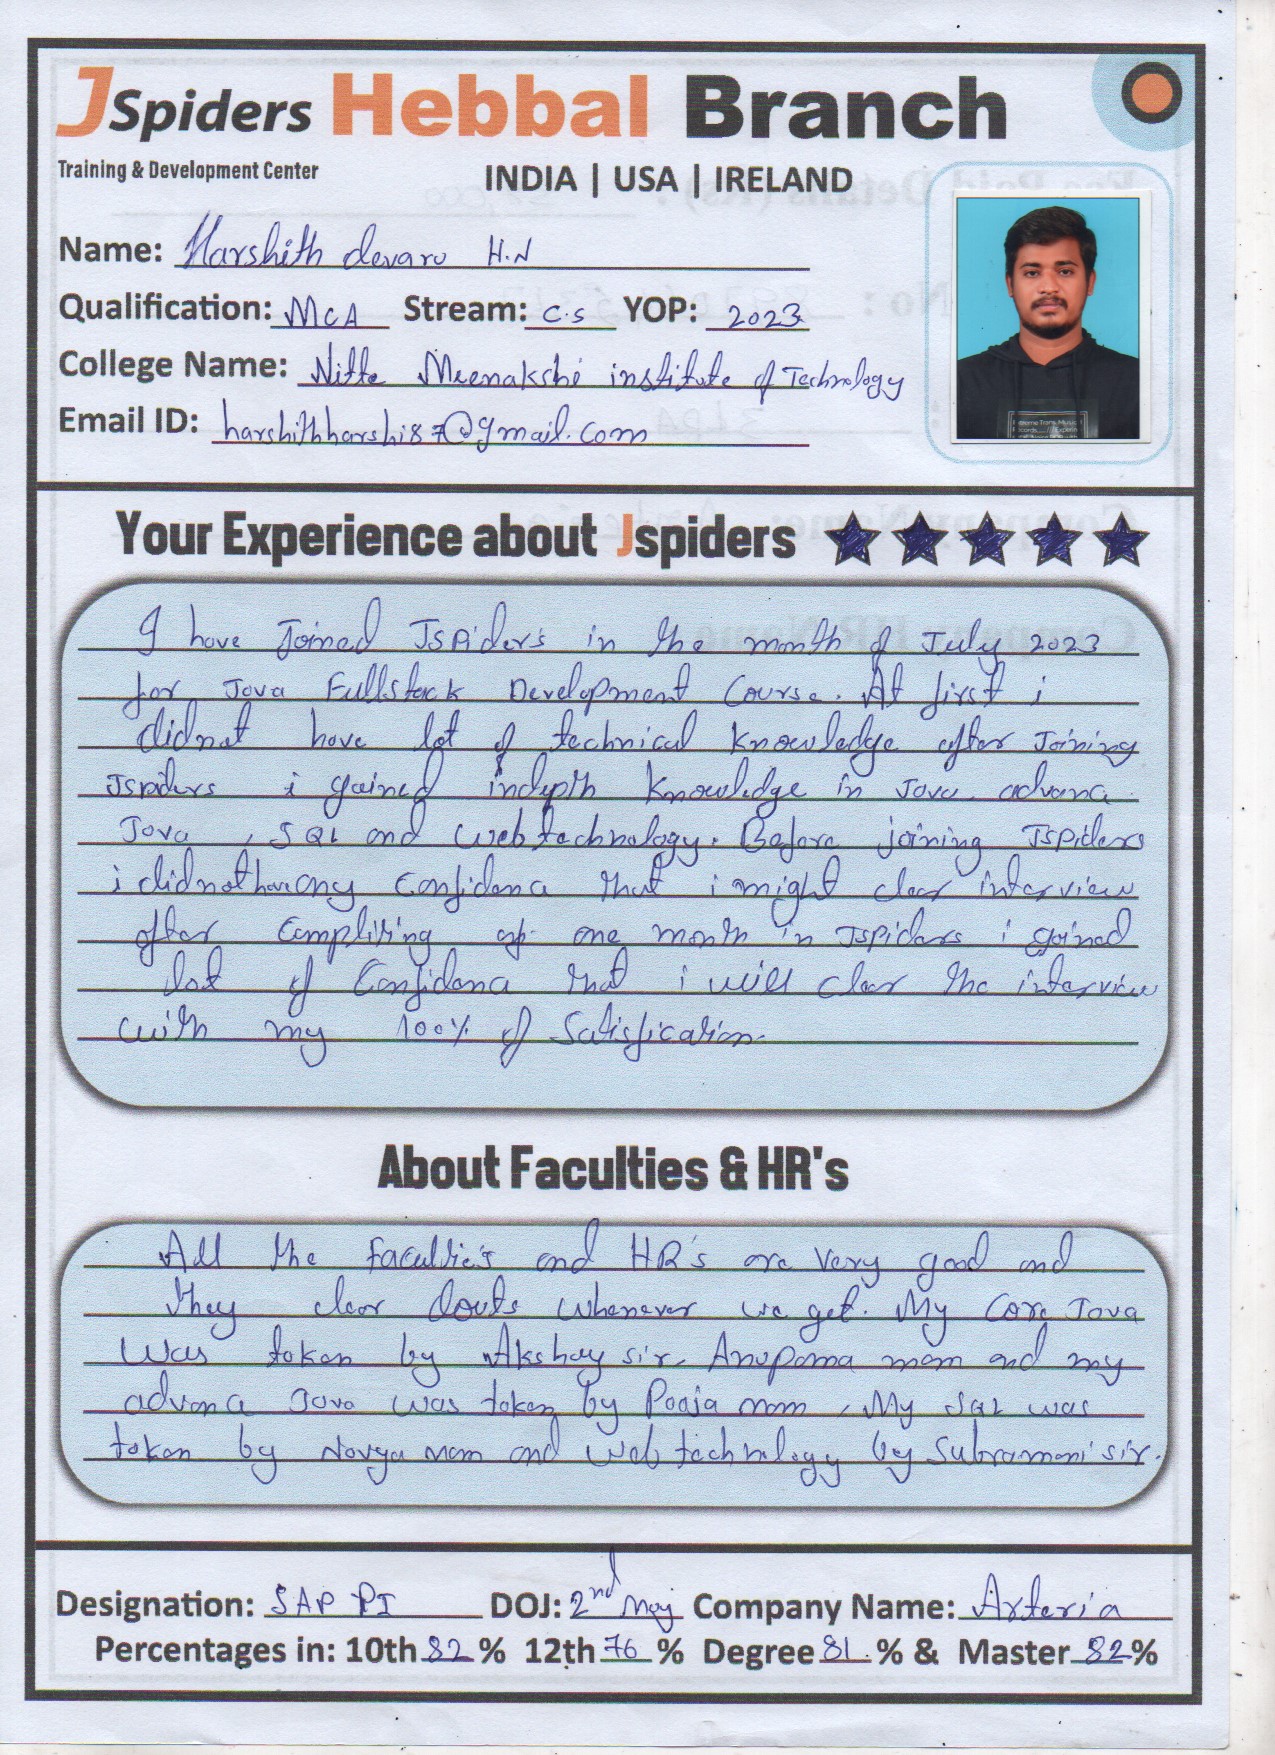 JSpiders Hebbal Branch
Training & Development Center
INDIA | USA | IRELAND
Name: Harshith devaru H.N
Qualification: MCA Stream: C.S YOP: 2023
College Name: Nitte Meenakshi institute of Technology
Email ID: harshithharshi87@gmail.com
Your Experience about Jspiders
I have Joined JSpider's in the month of July 2023
for Java Fullstack Development Course. At first i
didnot have lot of technical knowledge after Joining
Jspiders i gained indepth knowledge in Java, advance
Java, SQL and Web technology. Before joining JSpiders
i didnot have any Confidence that i might clear interview
after Compliting of one month in JSpiders i gained
lot of Confidence that i will clear the interview
with my 100% of Satisfication.
About Faculties & HR's
All the Facultie's and HR's are Very good and
they clear douts Whenever we get. My Core Java
Was taken by Akshay sir, Anupama mam and my
advance Java was taken by Pooja mam, My SQL was
taken by Navya mam and Web technology by Subramani sir.
Designation: SAP PI DOJ: 2nd May Company Name: Arteria
Percentages in: 10th 82 % 12th 76 % Degree 81. % & Master 82 %